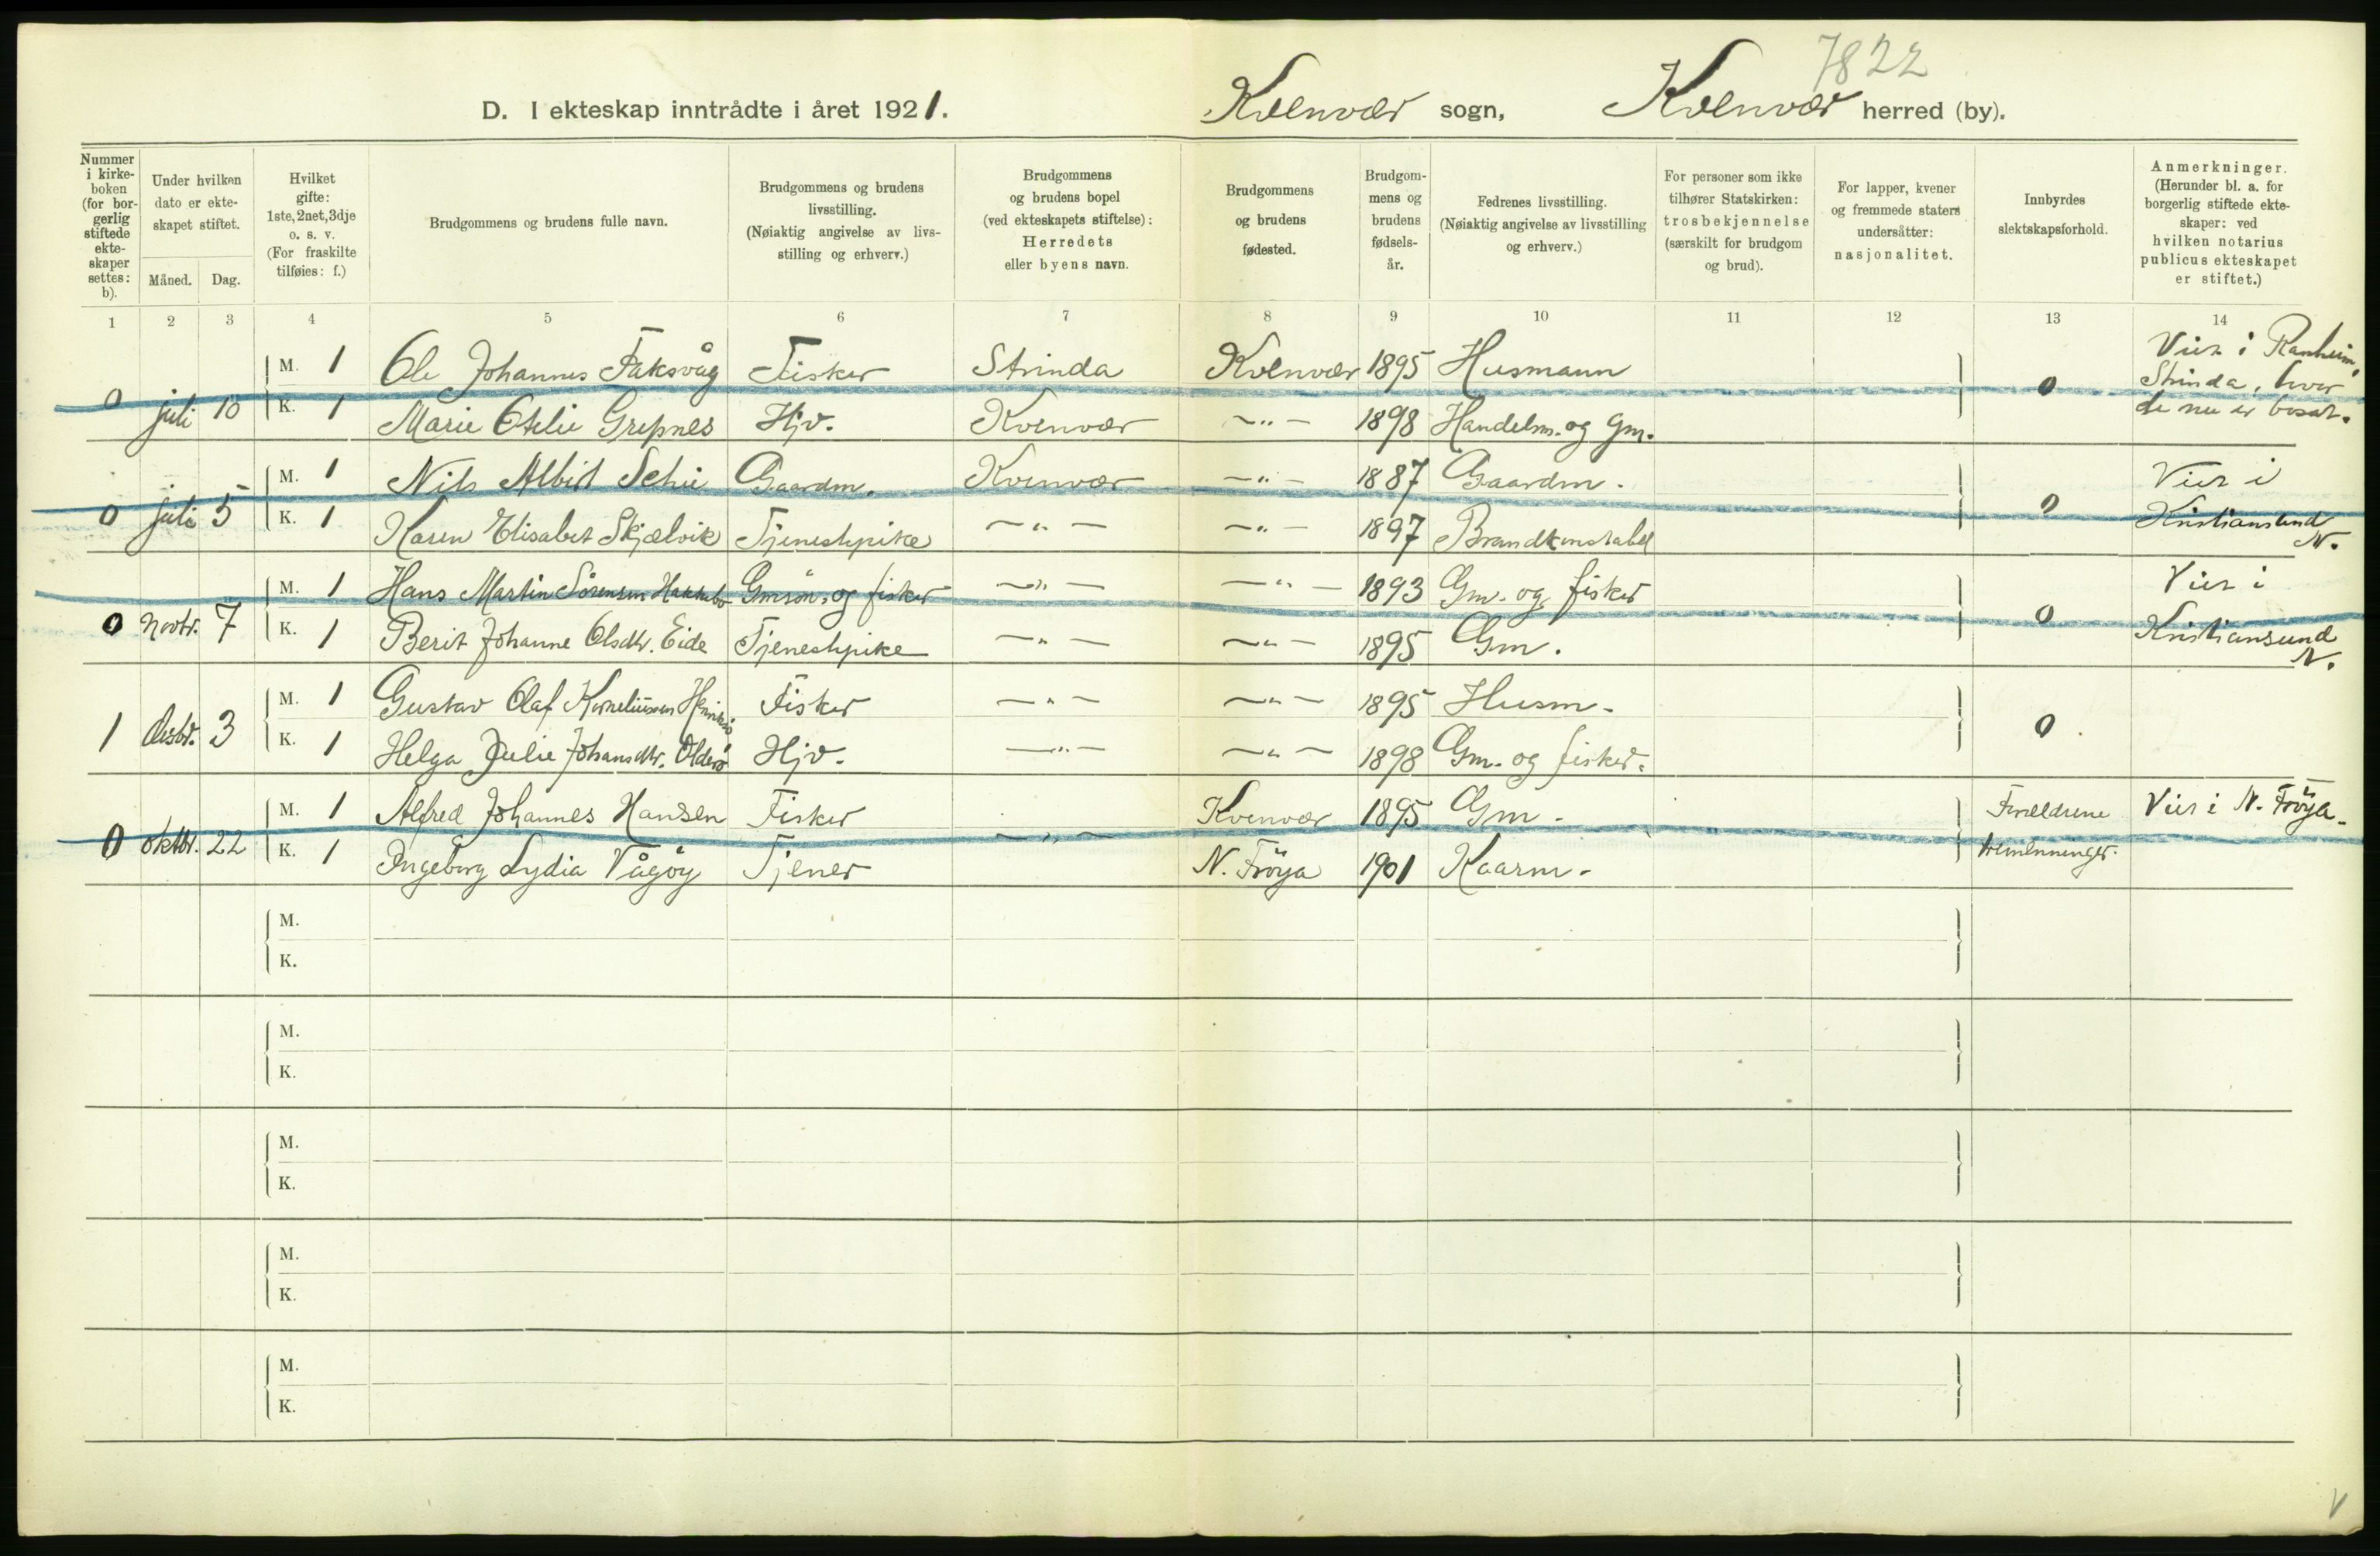 7822
D. I ekteskap inntrådte i året 1921. Kvenvær sogn, Kvenvær herred (by).
Nummer i kirkeboken (for borgerlig stiftede ekteskaper settes: b).
Under hvilken dato er ekteskapet stiftet.
Måned. Dag.
Hvilket gifte: 1ste, 2net, 3dje o. s. v. (For fraskilte tilføies: f.)
Brudgommens og brudens fulle navn.
Brudgommens og brudens livsstilling. (Nøiaktig angivelse av livsstilling og erhverv.)
Brudgommens og brudens bopel (ved ekteskapets stiftelse): Herredets eller byens navn.
Brudgommens og brudens fødested.
Brudgommens og brudens fødselsår.
Fedrenes livsstilling. (Nøiaktig angivelse av livsstilling og erhverv.)
For personer som ikke tilhører Statskirken: trosbekjennelse (særskilt for brudgom og brud).
For lapper, kvener og fremmede staters undersåtter: nasjonalitet.
Innbyrdes slektskapsforhold.
Anmerkninger. (Herunder bl. a. for borgerlig stiftede ekteskaper: ved hvilken notarius publicus ekteskapet er stiftet.)
1 2 3 4 5 6 7 8 9 10 11 12 13 14
M. 1 Ole Johannes Faksvåg Fisker Strinda Kvenvær 1895 Husmann Viet i Ranheim, Strinda, hvor
0 juli 10 K. 1 Marie Otelie Grepnes Hjv. Kvenvær -"- 1898 Handelsm. og Gm. 0 de nu er bosat.
M. 1 Nils Albert Gaardm. Kvenvær -"- 1887 Gaardm. Viet i
0 juli 5 K. 1 Karen Elisabet Skjælvik Tjenestpike -"- -"- 1897 Brandkonstabel 0 Kristiansund N.
M. 1 Hans Martin Sörensen Gmsön. og fisker -"- -"- 1893 Gm. og fisker Viet i
0 Novbr. 7 K. 1 Berit Johanne Olsdtr. Eide Tjenestpike -"- -"- 1895 Gm. 0 Kristiansund N.
M. 1 Gustav Olaf Korneliussen Fisker -"- -"- 1895 Husm.
1 Desbr. 3 K. 1 Helga Julie Johansdtr. Olderö Hjv. -"- -"- 1898 Gm. og fisker. 0
M. 1 Alfred Johannes Hansen Fisker Kvenvær 1895 Gm. Forældrene Viet i N. Fröya.
0 Oktbr. 22 K. 1 Ingeborg Lydia Vågöy Tjener -"- N. Fröya 1901 Kaarm. tremenninger.
M.
K.
M.
K.
M.
K.
M.
K.
M.
K.
V